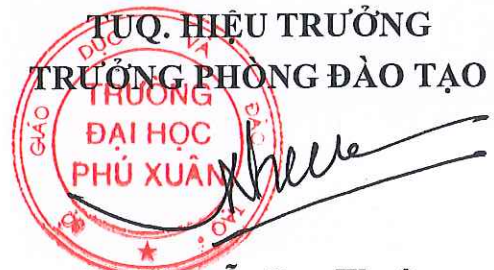 TUQ. HIỆU TRƯỞNG
TRƯỞNG PHÒNG ĐÀO TẠO
BỘ GIÁO DỤC VÀ ĐÀO TẠO
TRƯỜNG
ĐẠI HỌC
PHÚ XUÂN